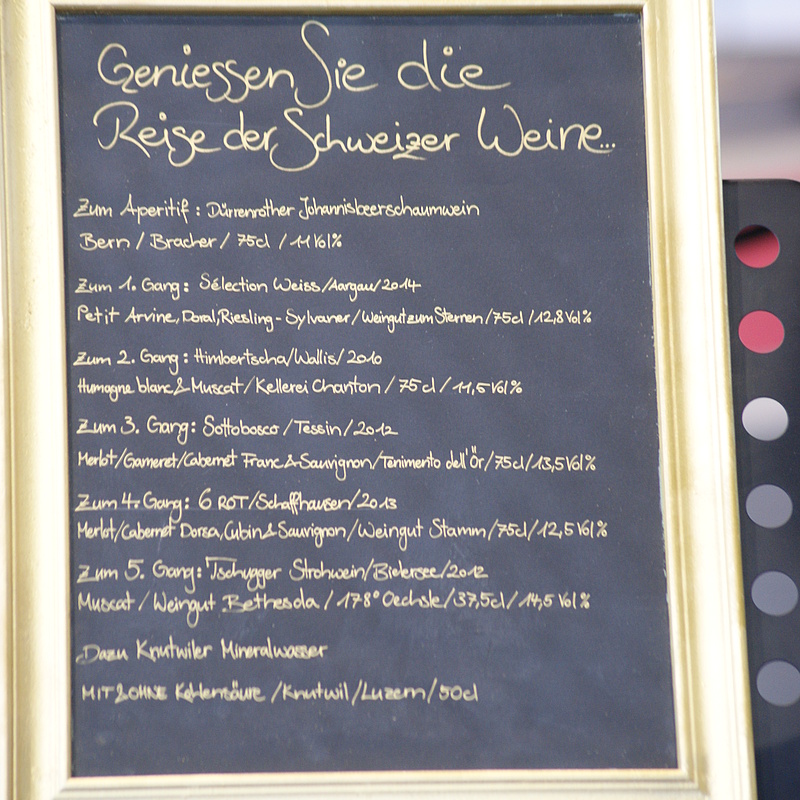 Geniessen Sie die
Reise der Schweizer Weine...
Zum Aperitif : Dürrenrother Johannisbeerschaumwein
Bern / Bracher / 75cl / 11 Vol%
Zum 1. Gang: Sélection Weiss/Aargau/2014
Petit Arvine, Doral, Riesling-Sylvaner/Weingut zum Sternen/75cl/12,8 Vol%
Zum 2. Gang: Himbertscha/Wallis/2010
Humagne blanc & Muscat/Kellerei Chanton/75cl/11,5 Vol%
Zum 3. Gang: Sottobosco/Tessin/2012
Merlot/Gameret/Cabernet Franc & Sauvignon/Tenimento dell'Ör/75cl/13,5 Vol%
Zum 4. Gang: 6 ROT/Schaffhausen/2013
Merlot/Cabernet Dorsa, Cubin & Sauvignon/Weingut Stamm/75cl/12,5 Vol%
Zum 5. Gang: Tschugger Strohwein/Bielersee/2012
Muscat/Weingut Bethesda/178° Oechsle/37,5cl/14,5 Vol%
Dazu Knutwiler Mineralwasser
MIT & OHNE Kohlensäure/Knutwil/Luzern/50cl